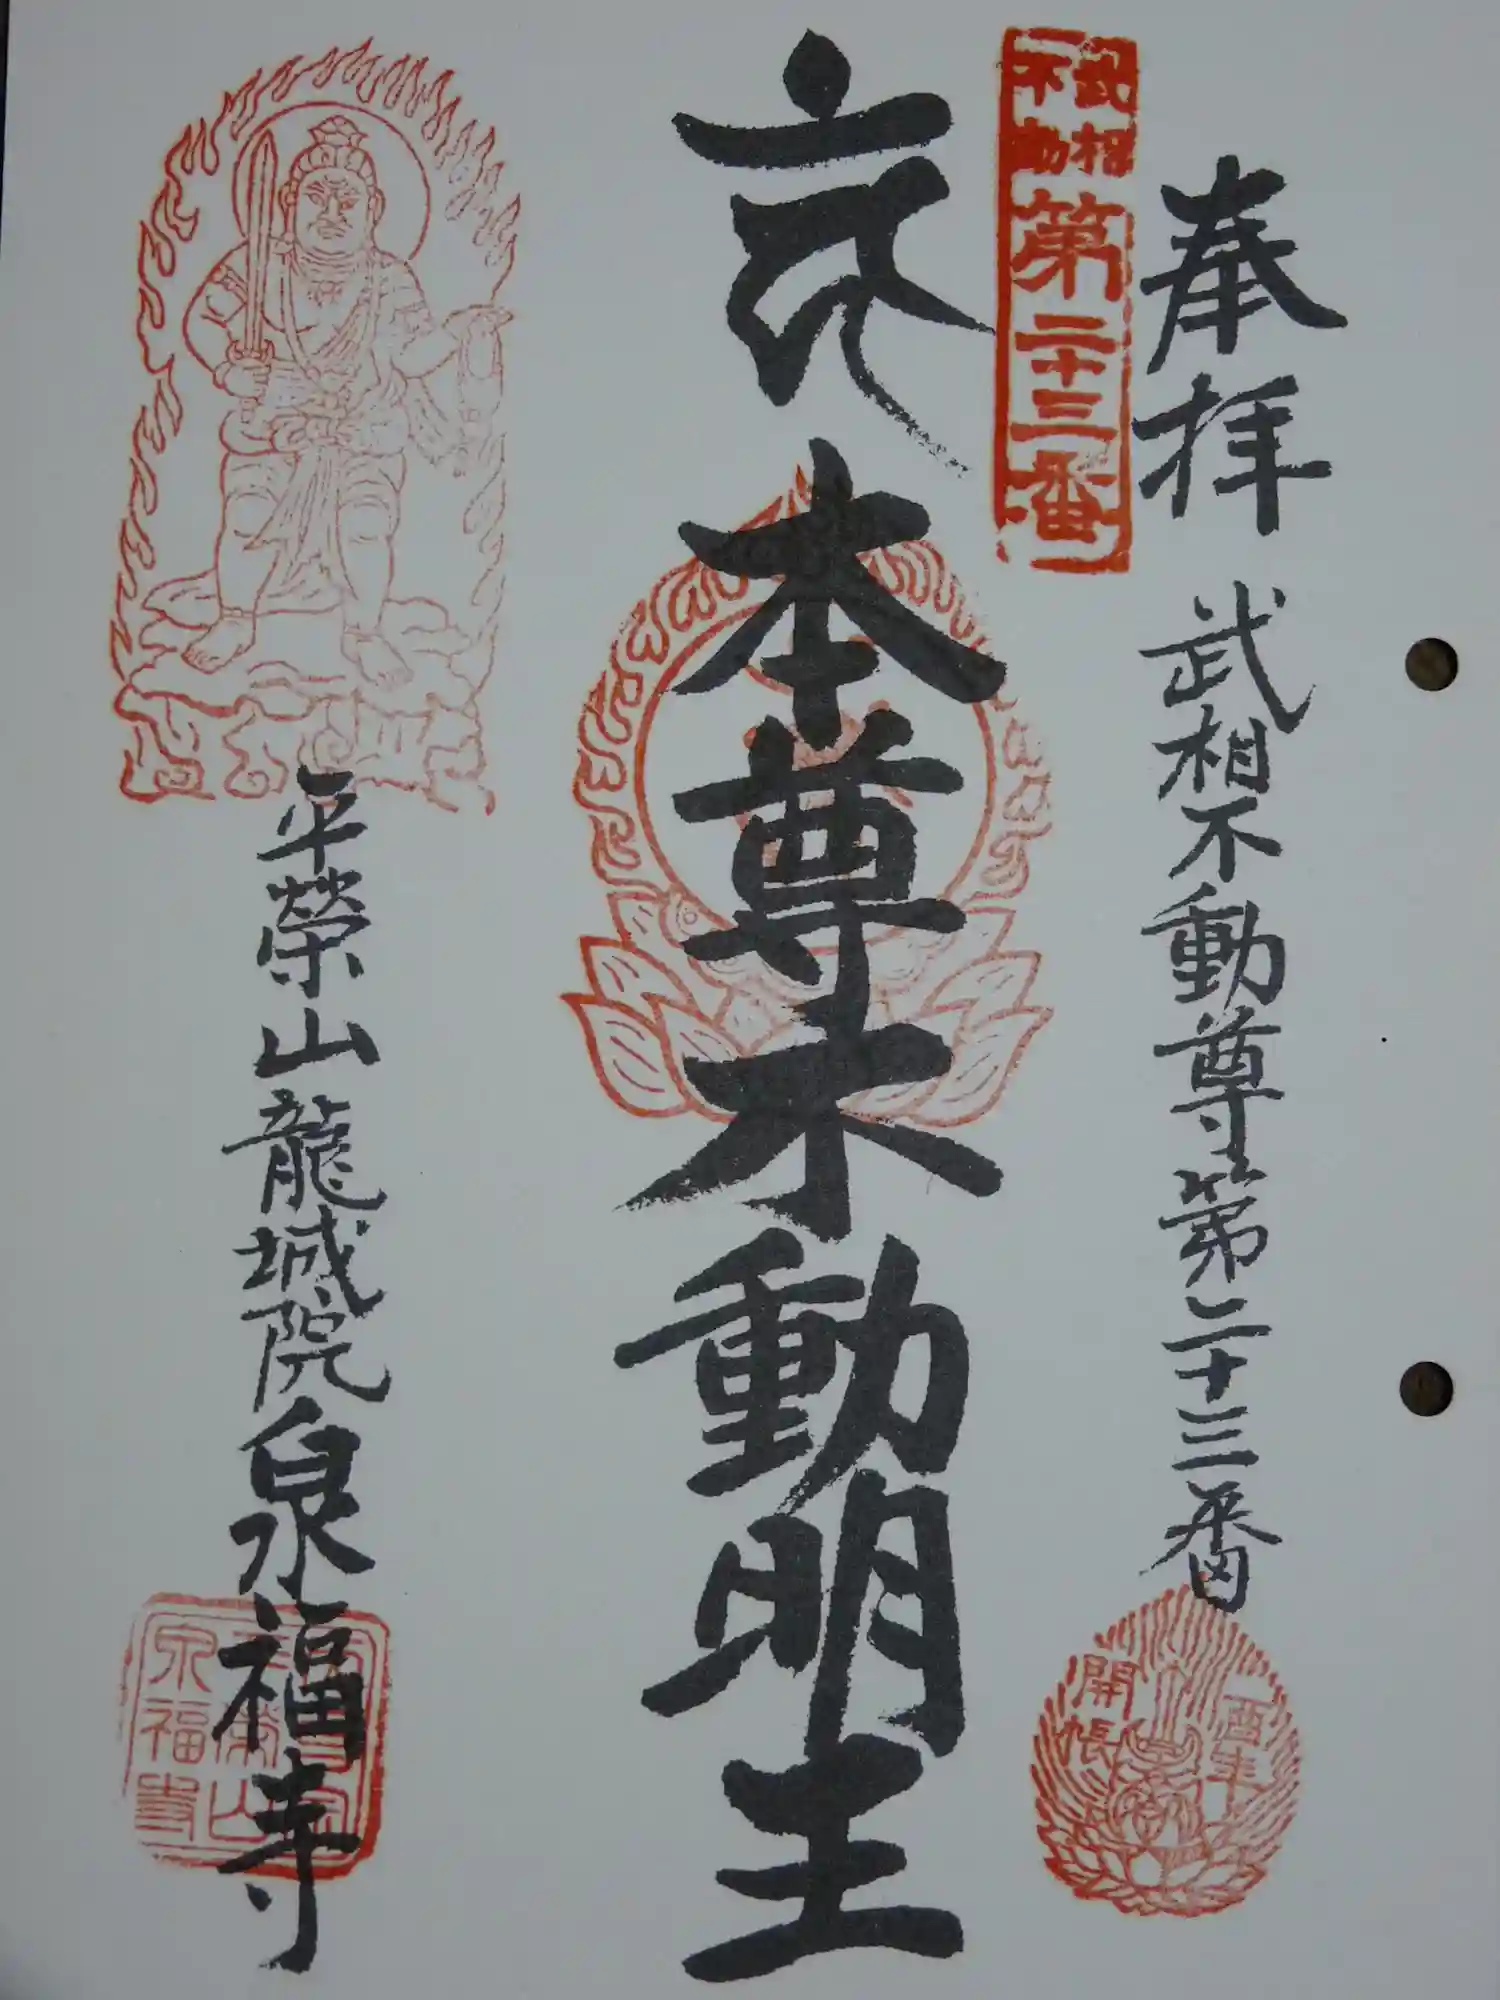 奉拝
武相不動尊第二十三番
武相
不動
第二十三番
本尊不動明王
平榮山龍城院泉福寺
酉年
開帳
泉福寺